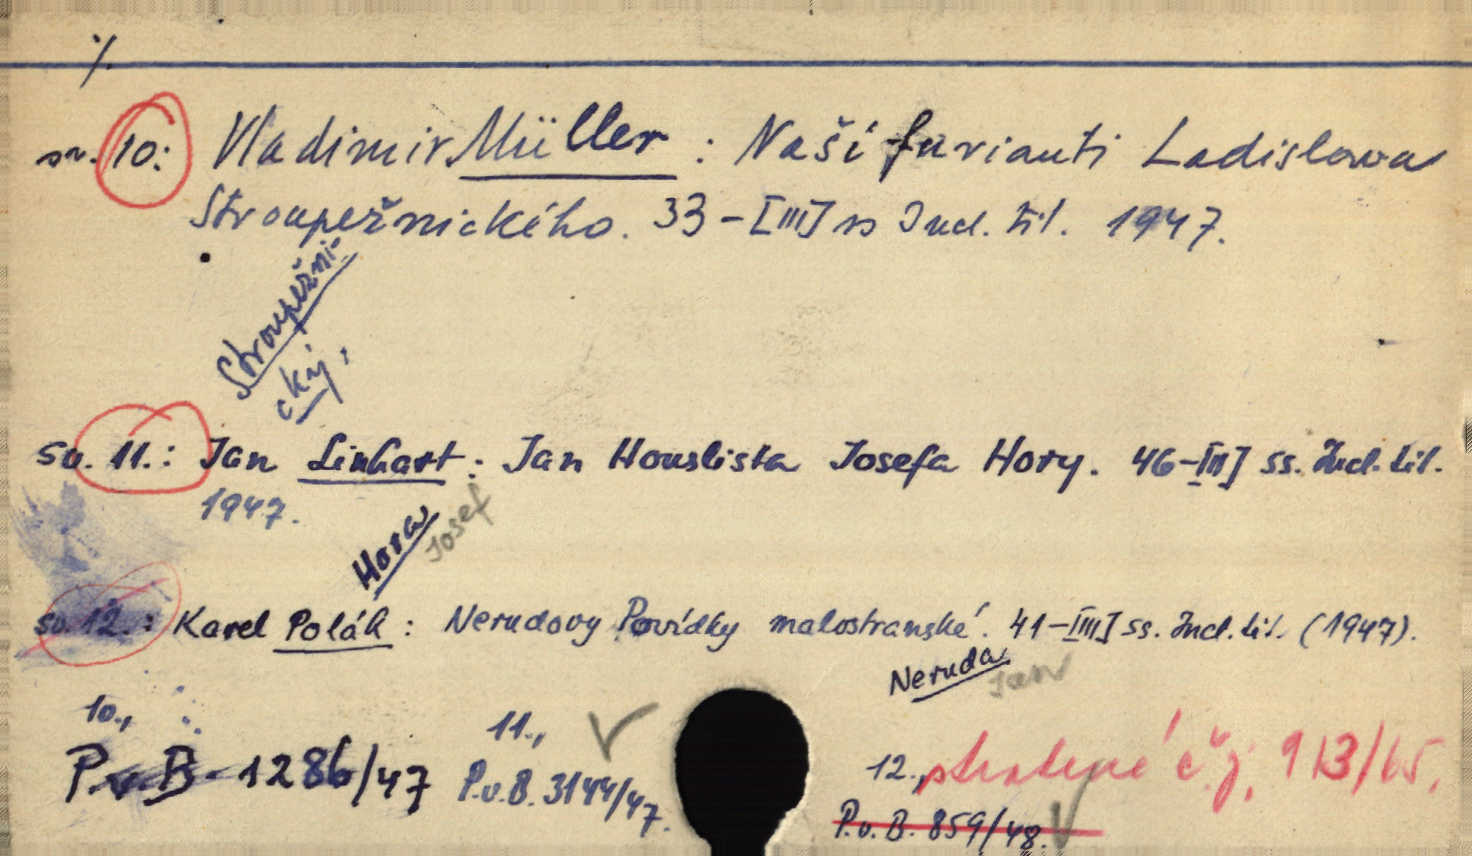 ./.
sv. 10: Vladimir Müller : Naši furianti Ladislava
Stroupežnického. 33-[III] ss Incl. tit. 1947.
Stroupežni-
cký,
sv. 11.: Jan Linhart : Jan Houslista Josefa Hory. 46-[II] ss. Incl. tit.
1947.
Hora Josef
sv. 12. : Karel Polák : Nerudovy Povídky malostranské. 41-[III] ss. Incl. tit. (1947).
Neruda Jan
10., 11., 12., stratené č.j. 913/65.
P.v.B - 1286/47 P.v.B. 3144/47. P.v.B. 859/48.